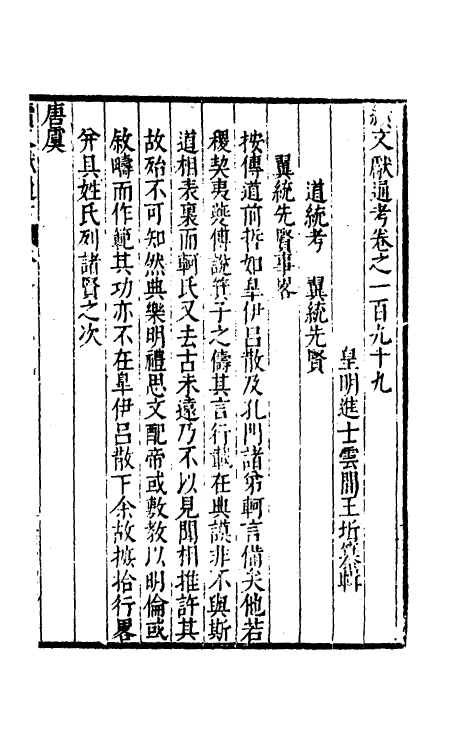 續文獻通考卷之一百九十九
皇明進士雲間王圻纂輯
道統考　翼統先賢
翼統先賢事畧
按傳道前哲如臯伊呂散及孔門諸弟軻言備矣他若
稷契夷夔傅說箕子之儔其言行載在典謨非不與斯
道相表裏而軻氏又去古未遠乃不以見聞相推許其
故殆不可知然典樂明禮思文配帝或敷教以明倫或
敘疇而作範其功亦不在臯伊呂散下余故摭拾行畧
并具姓氏列諸賢之次
唐虞